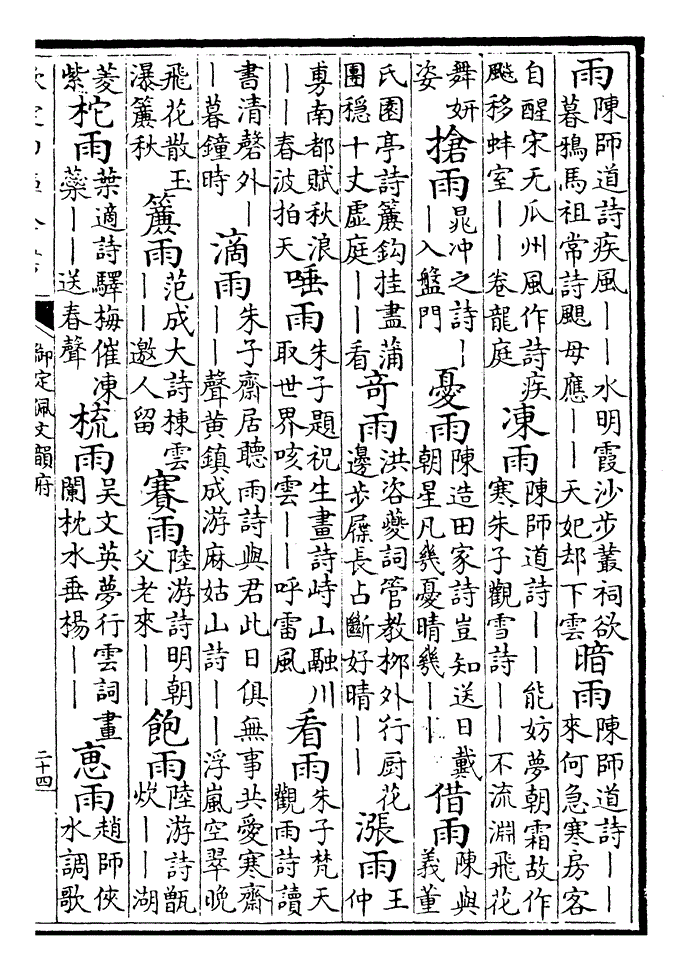 雨陳師道詩疾風——水明霞沙步叢祠欲暮鴉馬祖常詩颶母應——天妃却下雲暗雨陳師道詩——來何急寒房客
自醒宋无瓜州風作詩疾颷移蚌室——卷龍庭凍雨陳師道詩——能妨夢朝霜故作寒朱子觀雪詩——不流淵飛花
舞妍姿搶雨晁冲之詩——入盤門憂雨陳造田家詩豈知送日戴朝星凡幾憂晴幾——借雨陳與義董
氏園亭詩簾鈎挂盡蒲團穩十丈虛庭——看奇雨洪咨夔詞管教栁外行厨花邊步屧長占斷好晴——漲雨王仲
旉南都賦秋浪——春波拍天唾雨朱子題祝生畫詩峙山融川取世界咳雲——呼雷風看雨朱子梵天觀雨詩讀
書清磬外——暮鐘時滴雨朱子齋居聽雨詩與君此日俱無事共愛寒齋——聲黄鎮成游麻姑山詩——浮嵐空翠晚
飛花散玉瀑簾秋簾雨范成大詩棟雲——邀人留賽雨陸游詩明朝父老來——飽雨陸游詩甑炊——湖
菱紫柁雨葉適詩驛梅催凍蘂——送春聲梳雨吳文英夢行雲詞畫闌枕水垂楊——恵雨趙師俠水調歌
御定佩文韻府
二十四